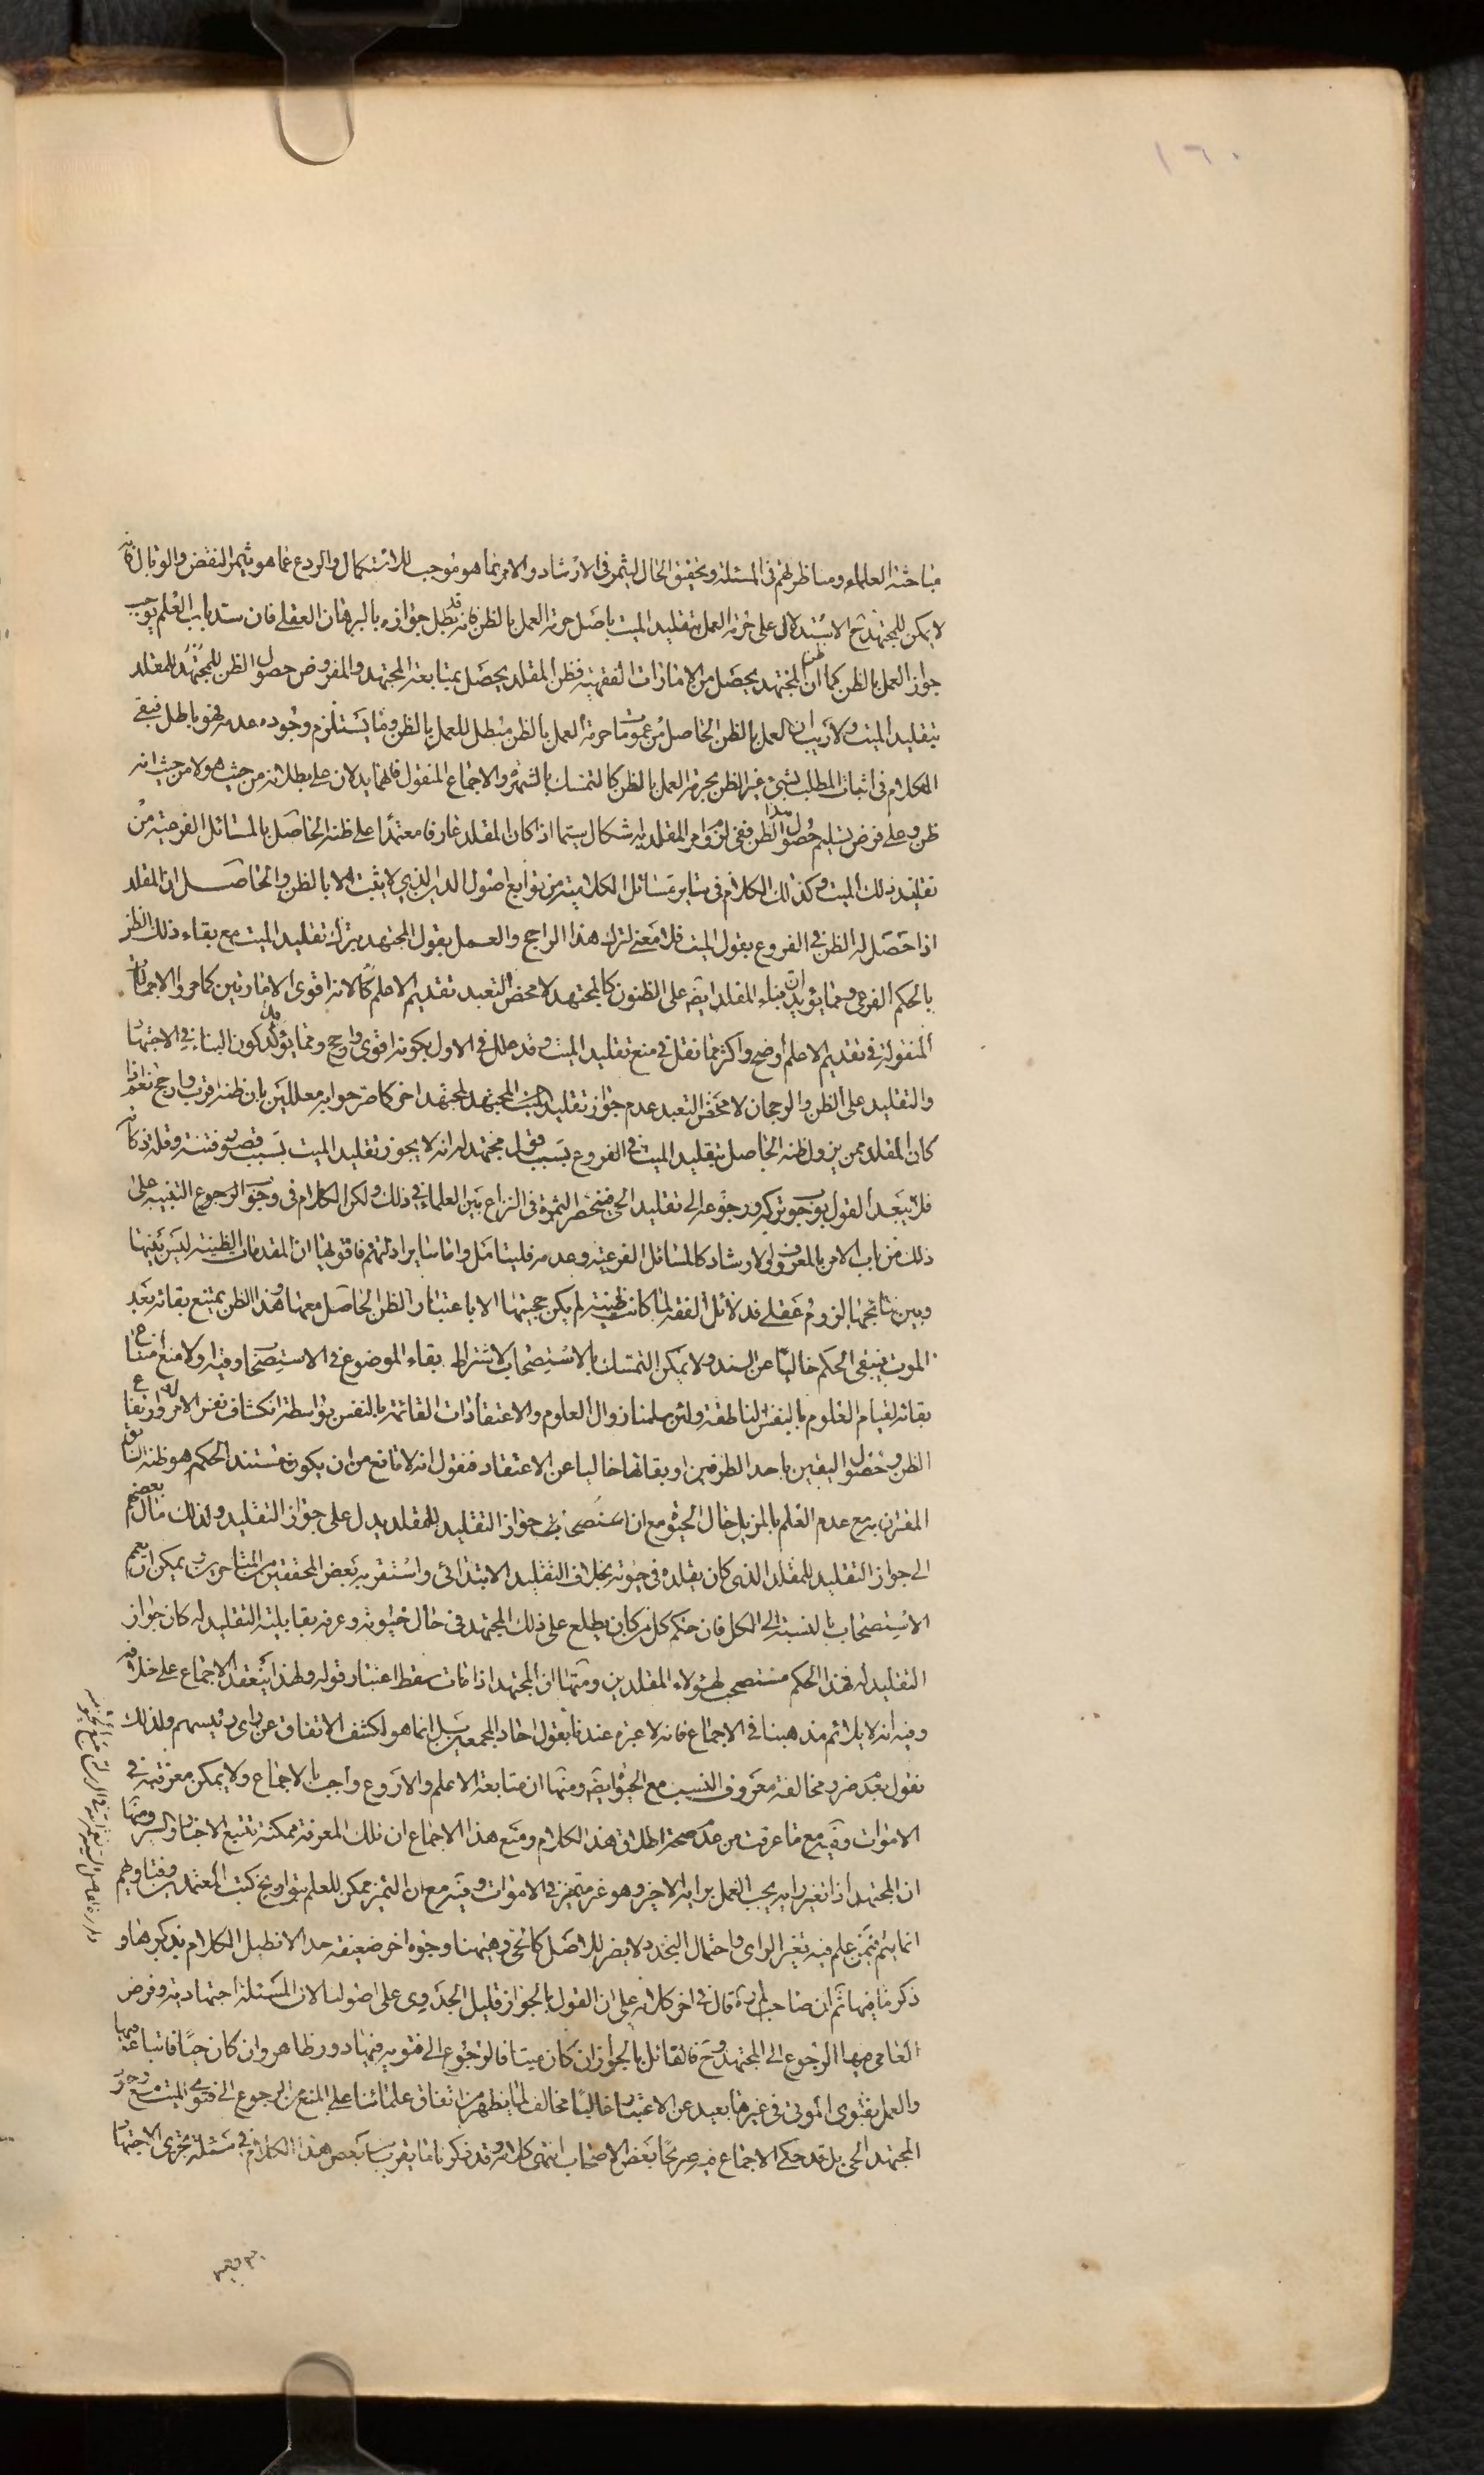 ١٦٠
مباحثة العلماء ومناظرتهم فى المسئلة وتحقيق الحال ليثمر فى الارشاد والامر بما هو موجب للاستكمال والردع عما هو يثمر النقض والوبال فانه
لا يمكن للمجتهد ح الاستدلال على حرمة العمل بتقليد الميت باصل حرمة العمل بالظن فانه قد بطل جوازه بالبرهان العقلى فان سد باب العلم يوجب
جواز العمل بالظن كما ان ظن المجتهد يحصل من الامارات الفقهية فظن المقلد يحصل بمتابعة المجتهد والمفروض حصول الظن للمجتهد للمقلد
بتقليد الميت ولا ريب ان العمل بالظن الحاصل من عمومات حرمة العمل بالظن مبطل للعمل بالظن وما يستلزم وجوده عدمه فهو باطل فبقى
الكلام فى اثبات المطلب بشىء غير الظن بحرمة العمل بالظن كالتمسك بالشهرة والاجماع المنقول فانهما يدلان على بطلانه من حيث هو لا من حيث انه
ظن وعلى فرض تسليم حصول هذا الظن ففى لزوم امر المقلد به اشكال سيما اذا كان المقلد عارفا معتمدا على ظنه الحاصل بالمسائل الفرعية من
تقليد ذلك الميت وكذلك الكلام فى سائر مسائل الكلامية من توابع اصول الدين الذى لا يثبت الا بالظن والحاصل ان المقلد
اذا حصل له الظن فى الفروع بقول الميت فلا معنى لترك هذا الراجح والعمل بقول المجتهد بترك تقليد الميت مع بقاء ذلك الظن
بالحكم الفرعى ومما يؤيد ان بناء المقلد ايضا على الظنون كالمجتهد لا محض التعبد تقديم الاعلم كالانه اقوى الامارتين كما مر والاجماعات
المنقولة فى تقديم الاعلم اوضح واكثر مما نقل فى منع تقليد الميت وقد علل فى الاول بكونه اقوى وارجح ومما يؤكد كون البناء فى الاجتهاد
والتقليد على الظن والرجحان لا محض التعبد عدم جواز تقليد المجتهد لمجتهد اخر كما صرحوا به معللين بان ظنه اقرب وارجح نعم اذا
كان المقلد ممن يزول ظنه الحاصل بتقليد الميت فى الفروع بسبب قول مجتهد له انه لا يجوز تقليد الميت بسبب قصور فتنته وقلة ذكائه
فلا يبعد القول بوجوب تركه ورجوعه الى تقليد الحى فتنحصر الثمرة فى النزاع بين العلماء فى ذلك ولكن الكلام فى وجوب الرجوع التنبيه على
ذلك من باب الامر بالمعروف والارشاد كالمسائل الفرعية وعدمه فليتامل واما سائر ادلتهم فاقولها ان المقدمات الظنية ليس بينها
وبين نتائجها لزوم عقلى فدلائل الفقه لما كانت ظنية لم يكن حجيتها الا باعتبار الظن الحاصل معها وهذا الظن يمتنع بقائه بعد
الموت فيبقى الحكم خاليا عن السند ولا يمكن التمسك بالاستصحاب لاشتراط بقاء الموضوع فى الاستصحاب وفيه اولا منع امتناع
بقائه لقيام العلوم بالنفس الناطقة ولئن سلمنا زوال العلوم والاعتقادات القائمة بالنفس بواسطة انكشاف نفس الامر وارتفاع
الظن وحصول اليقين باحد الطرفين او بقائها خاليا عن الاعتقاد فنقول انه لا مانع من ان يكون مستند الحكم هو ظنه السابق
المقترن به مع عدم العلم بالمزيل حال الحيوة مع ان استصحاب جواز التقليد للمقلد يدل على جواز التقليد ولذلك مال بعضهم
الى جواز التقليد للمقلد الذى كان يقلده فى حيوته بخلاف التقليد الابتدائى واستقر به بعض المحققين من المتاخرين ويمكن ان يعمم
الاستصحاب بالنسبة الى الكل فان حكم كل من كان يطلع على ذلك المجتهد فى حال حيوته وعرفه بقابلية التقليد له كان جواز
التقليد له فهذا الحكم مستصحب لهؤلاء المقلدين ومنها ان المجتهد اذا مات سقط اعتبار قوله ولهذا ينعقد الاجماع على خلافه
وفيه انه لا يلائم مذهبنا فى الاجماع فانه لا عبرة عندنا بقول احاد المجمعين بل انما هو لكشف الاتفاق عن راى رئيسهم ولذلك
نقول بعدم ضرر مخالفة معروف النسب مع الحيوة ايضا ومنها ان متابعة الاعلم والاروع واجب بالاجماع ولا يمكن معرفته فى
الاموات وفيه مع ما عرفت من عدم صحة اطلاق هذا الكلام ومنع هذا الاجماع ان تلك المعرفة ممكنة بتتبع الاخبار والسير ومنها
ان المجتهد اذا تغير رايه يجب العمل برايه الاخير وهو غير متميز فى الاموات وفيه مع ان التميز ممكن للعلم بتواريخ كتب المعتمدين وفتاويهم
انما يتم فيمن علم فيه تغير الراى واحتمال التجدد لا يضر للاصل كالحى وهيهنا وجوه اخر ضعيفة جدا لا نطيل الكلام بذكرها و
ذكر ما فيها ثم ان صاحب لم ره قال فى اخر كلامه على ان القول بالجواز قليل الجدوى على اصولنا لان المسئلة اجتهادية وفرض
العامى فيها الرجوع الى المجتهد وح فالقائل بالجواز ان كان ميتا فالرجوع الى فتويه فيها دور ظاهر وان كان حيا فاتباعه فيها
والعمل بفتوى الموتى فى غيرها بعيد عن الاعتبار غالبا مخالف لما يظهر من اتفاق علمائنا على المنع من الرجوع الى فتوى الميت مع وجود
المجتهد الحى بل قد حكى الاجماع فيه صريحا بعض الاصحاب انتهى كلامه وقد ذكرنا ما يقرب بعض هذا الكلام فى مسئلة تجزى الاجتهاد